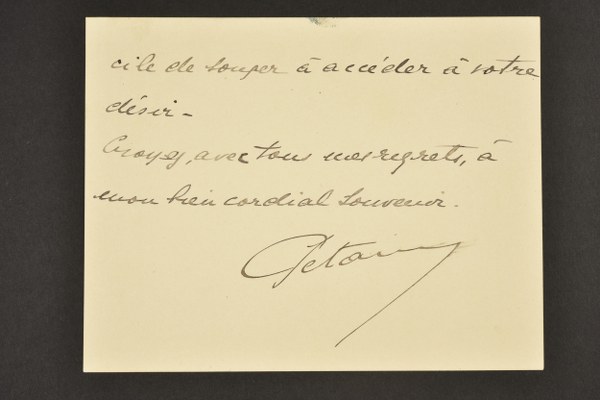 cile de songer à accéder à votre
désir -
Croyez, avec tous mes regrets, à
mon bien cordial souvenir.
Pétain